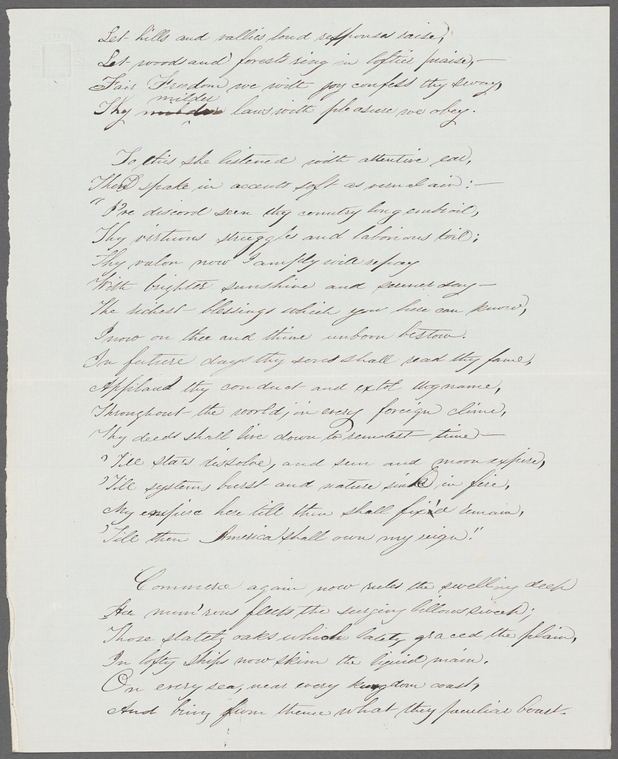 Let hills and vallies loud responses raise,
Let woods and forests ring in loftier praise,—
Fair Freedom we with joy confess thy sway,
Thy milder laws with pleasure we obey.
To this she listened with attentive ear,
Then spake in accents soft as vernal air:—
"I've discord seen thy country long embroil,
Thy virtuous struggles and laborious toil;
Thy valor now I amply will repay
With brighter sunshine and serener day—
The richest blessings which you here can know,
I now on thee and thine unborn bestow.
In future days thy sons shall read thy fame,
Applaud thy conduct and extol thy name,
Throughout the world, in every foreign clime,
Thy deeds shall live down to remotest time—
'Till stars dissolve, and sun and moon expire,
'Till systems burst and nature sink in fire,
My empire here till then shall fix'd remain,
'Till then America shall own my reign."
Commerce again now rules the swelling deep
Her num'rous fleets the surging billows sweep;
Those stately oaks which lately graced the plain,
In lofty ships now skim the liquid main.
On every sea, near every kingdom coast,
And bring from thence what they peculiar boast.